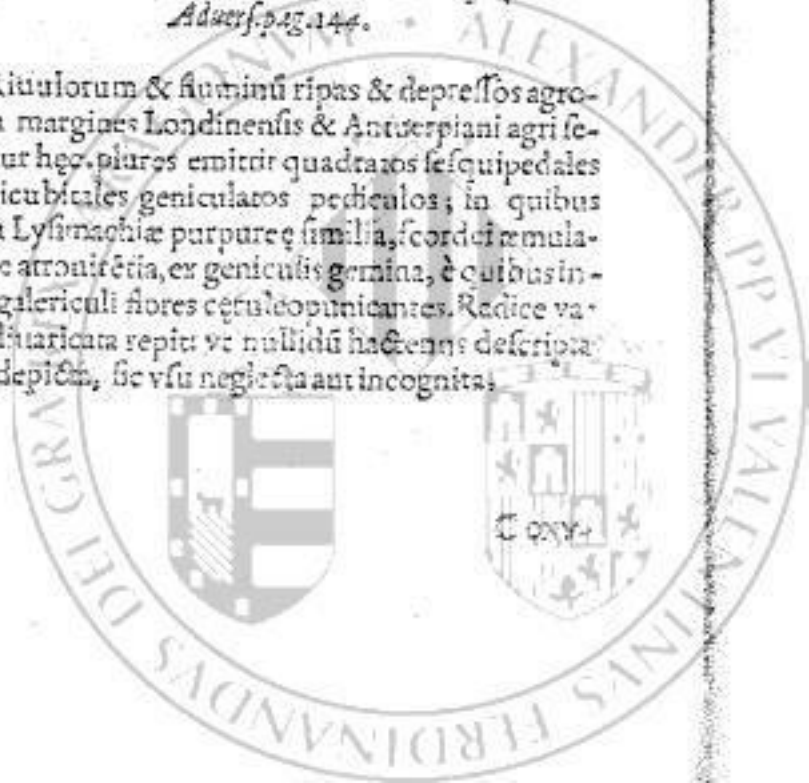 Aduers.pag.144.
riuulorum & fluminũ ripas & depreſſos agro-
margines Londinenſis & Antuerpiani agri ſe-
ur hęc. plures emittit quadratos ſeſquipedales
icubitales geniculatos pediculos; in quibus
Lyſimachiæ purpureę ſimilia, ſcordei æmula-
geniculis gemina, è quibus in-
galericuli flores cęruleopunicantes. Radice va-
repit: vt nullidũ hactenus deſcripta
depicta, ſic vſu neglecta aut incognita.
ALEXANDER PP VI VALENTINVS FERDINANDVS DEI GRA